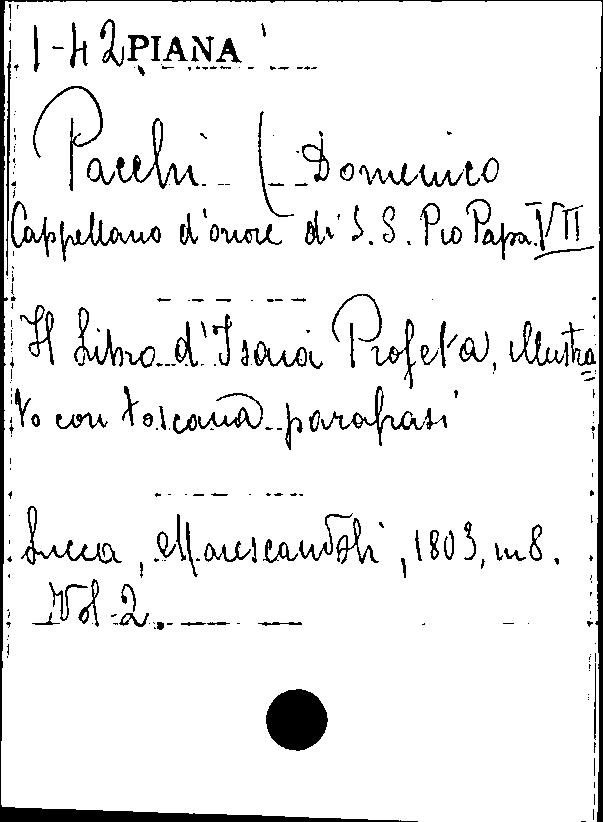 1-42 PIANA
Pacchi (Domenico
Cappellano d'onore di S. S. Pio Papa VII
Il Libro d'Isaia Profeta, illustra
to con toscana parafrasi
Lucca, Marescandoli, 1803, in 8.
Vol. 2.